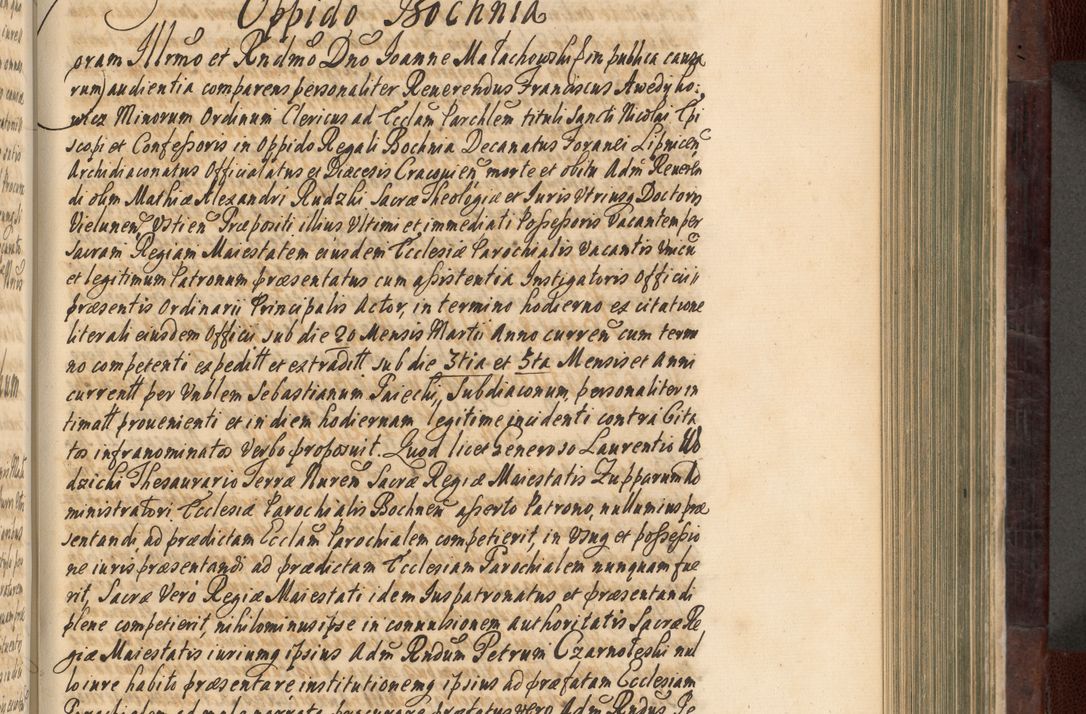 Oppido Bochnia
oram Illrmo et Rndmo Dno Joanne Małachowski in publica causa
rum audientia comparens personaliter Reuerendus Franciscus Awedyko:
wicz Minorum Ordinum Clericus ad Ecclam Parchlem tituli Sancti Nicolai Epi
scopi et Confessoris in Oppido Regali Bochnia Decanatus Foranei Lipnicen
Archidiaconatus Officialatus et Diæcesis Cracouien morte et obitu Adm Reueren
di olim Mathiæ Alexandri Rudzki Sacræ Theologiæ et Juris Vtriusq Doctoris
Vielunen Vstien Præpositi illius Vltimi et immediati Possessoris Vacantem per
Sacram Regiam Maiestatem eiusdem Ecclesiæ Parochialis vacantis Vnicu
et legitimum Patronum præsentatus cum assistentia Instigatoris Officii
præsentis Ordinarii Principalis Actor, in termino hodierno ex citatione
literali eiusdem Officii sub die 20 Mensis Martii Anno curren cum termi
no competenti expeditt et extraditt sub die 3tia et 5ta Mensis et Anni
currentt per Vnblem Sebastianum Paiecki, Subdiaconum, personaliter in
timatt prouenienti et in diem hodiernam legitime incidenti contra Cita
tos infranominatos Verbo proposuit. Quod licet Generoso Laurentio Wo
dzicki Thesaurario Terræ Nuren Sacræ Regiæ Maiestatis Zupparum Ad
ministratori Ecclesiæ Parochialis Bochnen asserto Patrono, nullum ius præ
sentandi, ad prædictam Ecclam Parochialem competierit, in Vsuq et possessio
ne iuris præsentandi ad prædictam Ecclesiam Parochialem nunquam fue
rit, Sacræ Vero Regiæ Maiestati idem Juspatronatus et præsentandi
plene competierit, nihilominus ipse in conuulsionem authoritatis Sacræ Re
giæ Maiestatis iuriumq ipsius Adm Rndum Petrum Czarnoleski nul
lo iure habito præsentare institutionemq ipsius ad præfatam Ecclesiam
Parochialem ad male narrata procurare præfatus vero Adm Rndus Pe